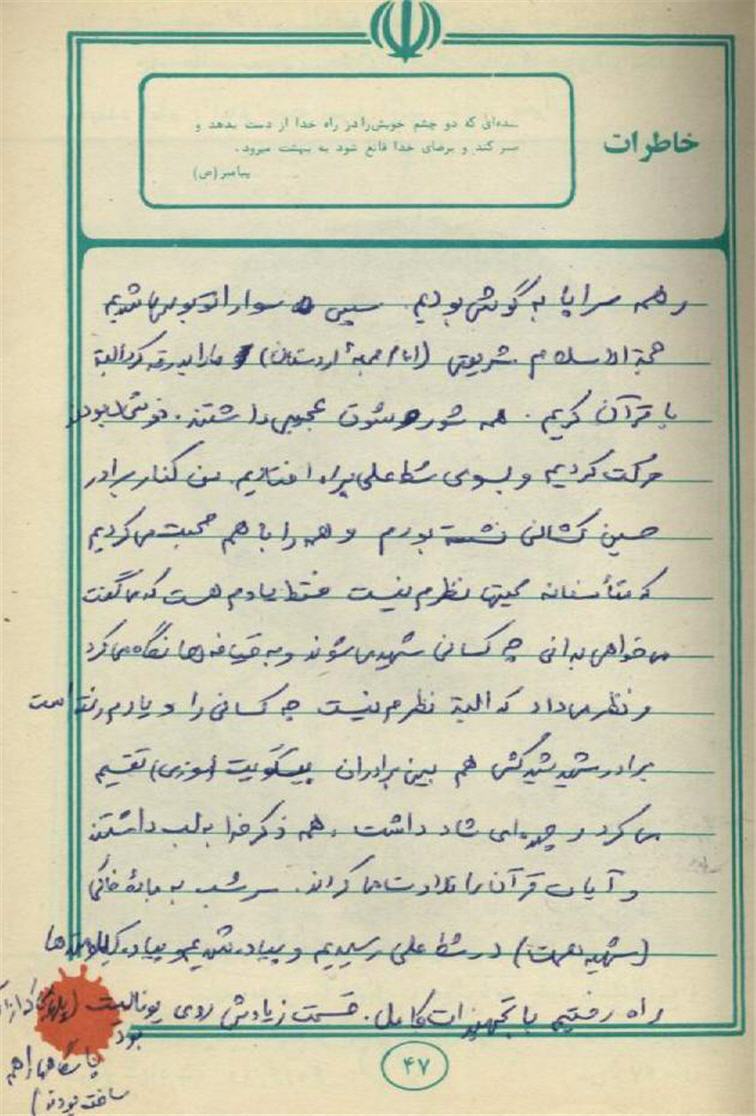 خاطرات
بنده‌ای که دو چشم خویش را در راه خدا از دست بدهد و
صبر کند و برضای خدا قانع شود به بهشت میرود.
پیامبر (ص)
و همه سراپا به گوش بودیم. سپس سوار اتوبوس‌ها شدیم
حجة الاسلام شریعتی (امام جمعهٔ اردستان) ما را بدرقه کرد البته
با قرآن کریم. همه شور و شوق عجیبی داشتند. خوشحال بودند
حرکت کردیم و بسوی شط علی براه افتادیم. من کنار برادر
حسین نشسته بودم و همه را با هم صحبت می‌کردیم
که متأسفانه نظرم نیست فقط یادم هست که می‌گفت
می‌خواهی بدانی چه کسانی شهید می‌شوند و به قیافه‌ها نگاه می‌کرد
و نظر می‌داد که البته نظرم نیست چه کسانی را و یادم رفته است
برادر شهید هم بین برادران بیسکویت (موزی) تقسیم
می‌کرد و چهره‌ای شاد داشت. همه ذکر خدا به لب داشتند
و آیات قرآن را تلاوت می‌کردند. سر شب به
(شهید همت) در شط علی رسیدیم و پیاده شدیم و پیاده کیلومترها
راه رفتیم با تجهیزات کامل. قسمت زیادش روی یونالیت
بود
پاسگاهها را هم
ساخته بودند)
۴۷